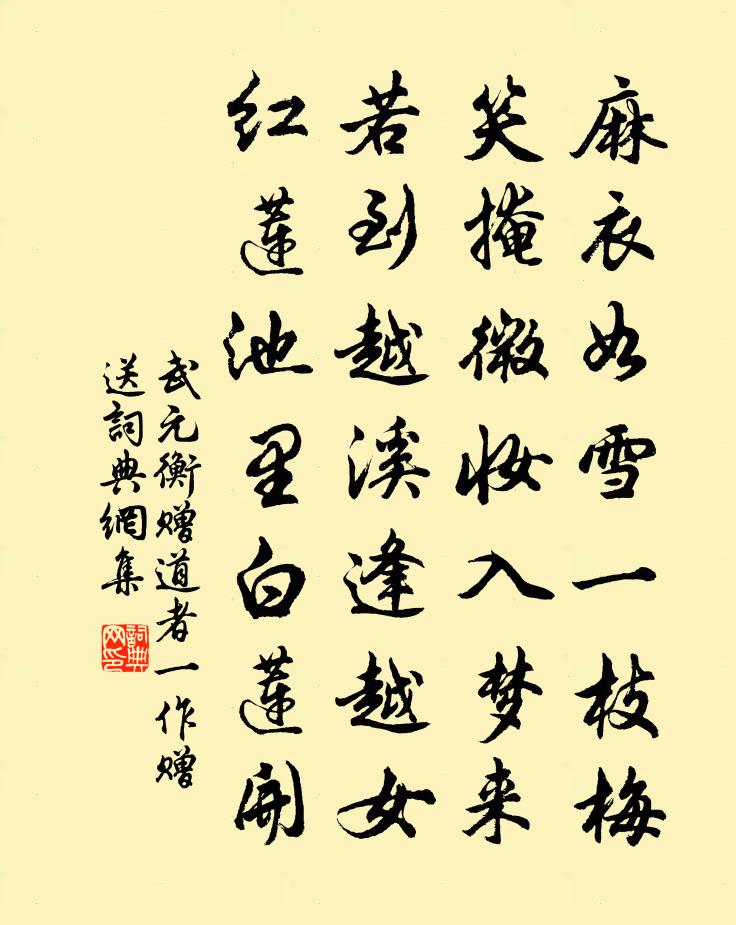 麻衣如雪一枝梅
笑掩微妆入梦来
若到越溪逢越女
红莲池里白莲開
武元衡赠道者一作赠
送詞典網集
詞典
网印